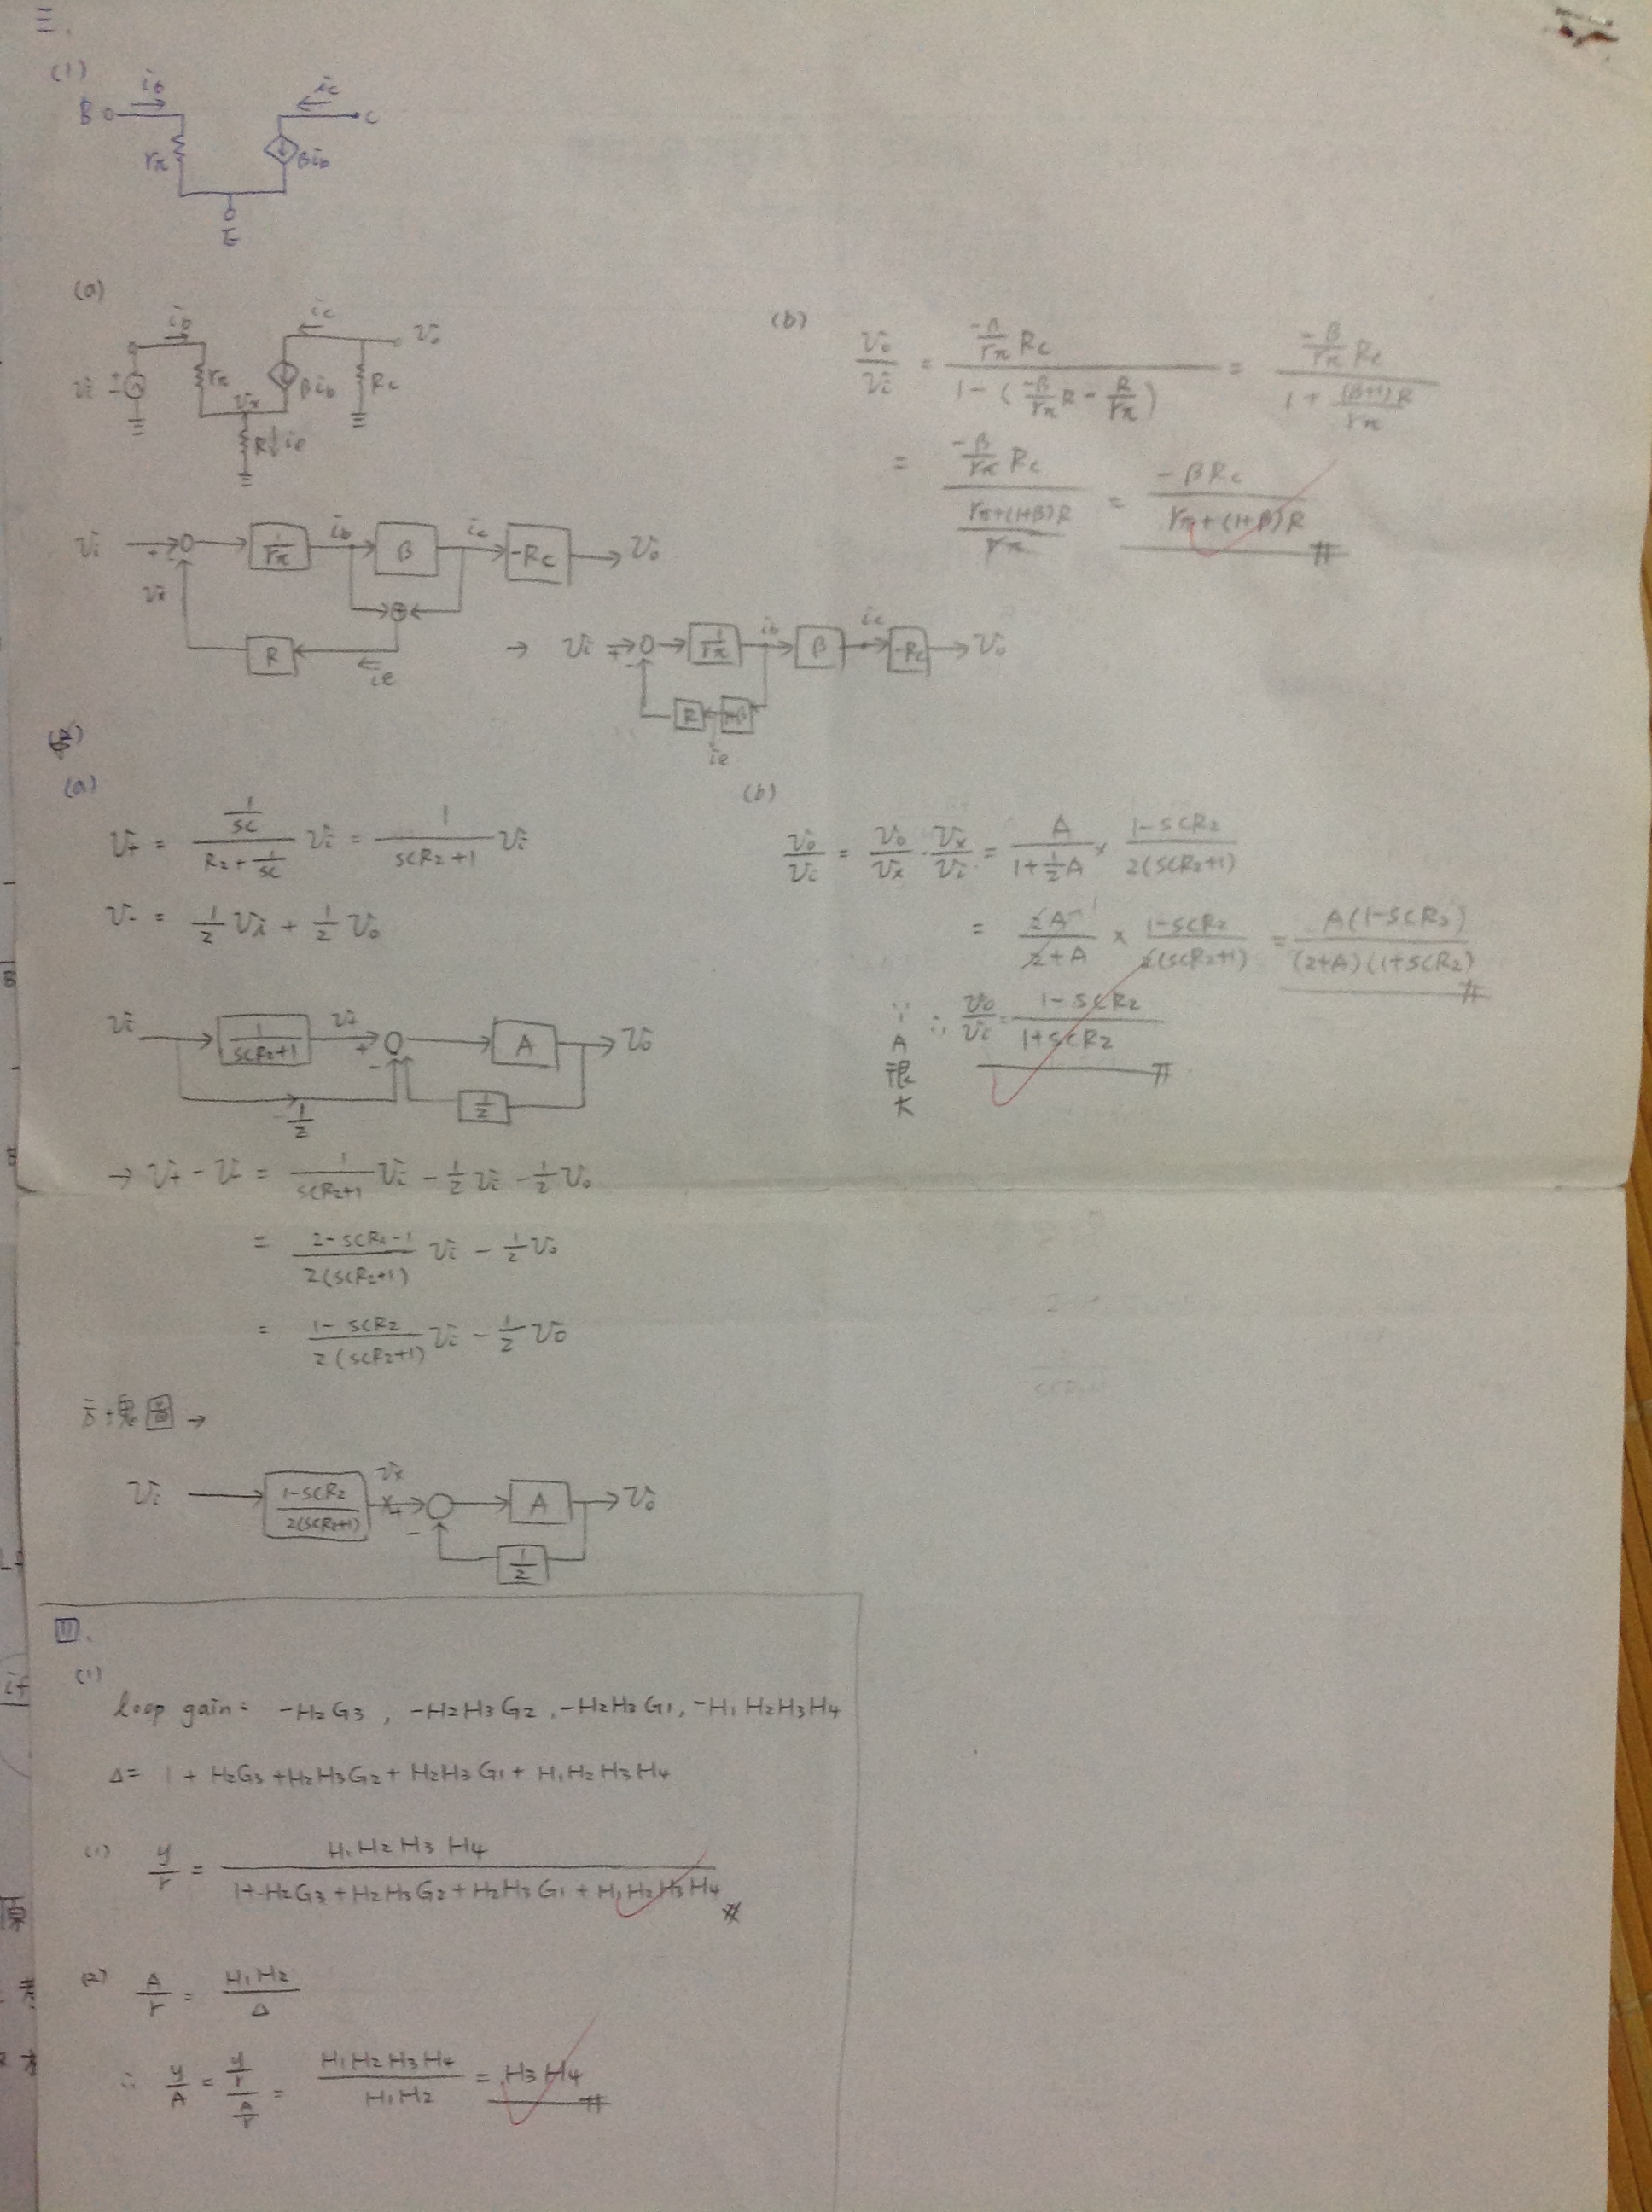 三.
(1)
ib
ic
B
C
rπ
βib
E
(a)
ib
ic
vo
vi
+
-
rπ
vx
βib
Rc
R↓ie
vi
+
-
1/rπ
ib
β
ic
-Rc
vo
vx
R
ie
→ vi
+
-
1/rπ
ib
β
ic
-Rc
vo
R
ie
(b)
vo/vi = (-β/rπ Rc)/(1-(-β/rπ R - R/rπ)) = (-β/rπ Rc)/(1+ (β+1)R/rπ)
= (-β/rπ Rc)/((rπ+(1+β)R)/rπ) = -βRc/(rπ+(1+β)R) #
(a)
v+ = (1/sc)/(R2+1/sc) vi = 1/(scR2+1) vi
v- = 1/2 vi + 1/2 vo
vi
1/(scR2+1)
v+
+
-
A
vo
1/2
1/2
→ v+ - v- = 1/(scR2+1) vi - 1/2 vi - 1/2 vo
= (2-scR2-1)/(2(scR2+1)) vi - 1/2 vo
= (1-scR2)/(2(scR2+1)) vi - 1/2 vo
方塊圖→
vi
(1-scR2)/(2(scR2+1))
vx
+
-
A
vo
1/2
(b)
vo/vi = vo/vx · vx/vi = A/(1+1/2 A) × (1-scR2)/(2(scR2+1))
= 2A/(2+A) × (1-scR2)/(2(scR2+1)) = A(1-scR2)/((2+A)(1+scR2)) #
∵A很大 ∴ vo/vi = (1-scR2)/(1+scR2) #
四.
(1)
loop gain: -H2G3, -H2H3G2, -H2H3G1, -H1H2H3H4
Δ= 1 + H2G3 + H2H3G2 + H2H3G1 + H1H2H3H4
(1) y/r = H1H2H3H4/(1+H2G3+H2H3G2+H2H3G1+H1H2H3H4) #
(2) A/r = H1H2/Δ
∴ y/A = (y/r)/(A/r) = H1H2H3H4/H1H2 = H3H4 #